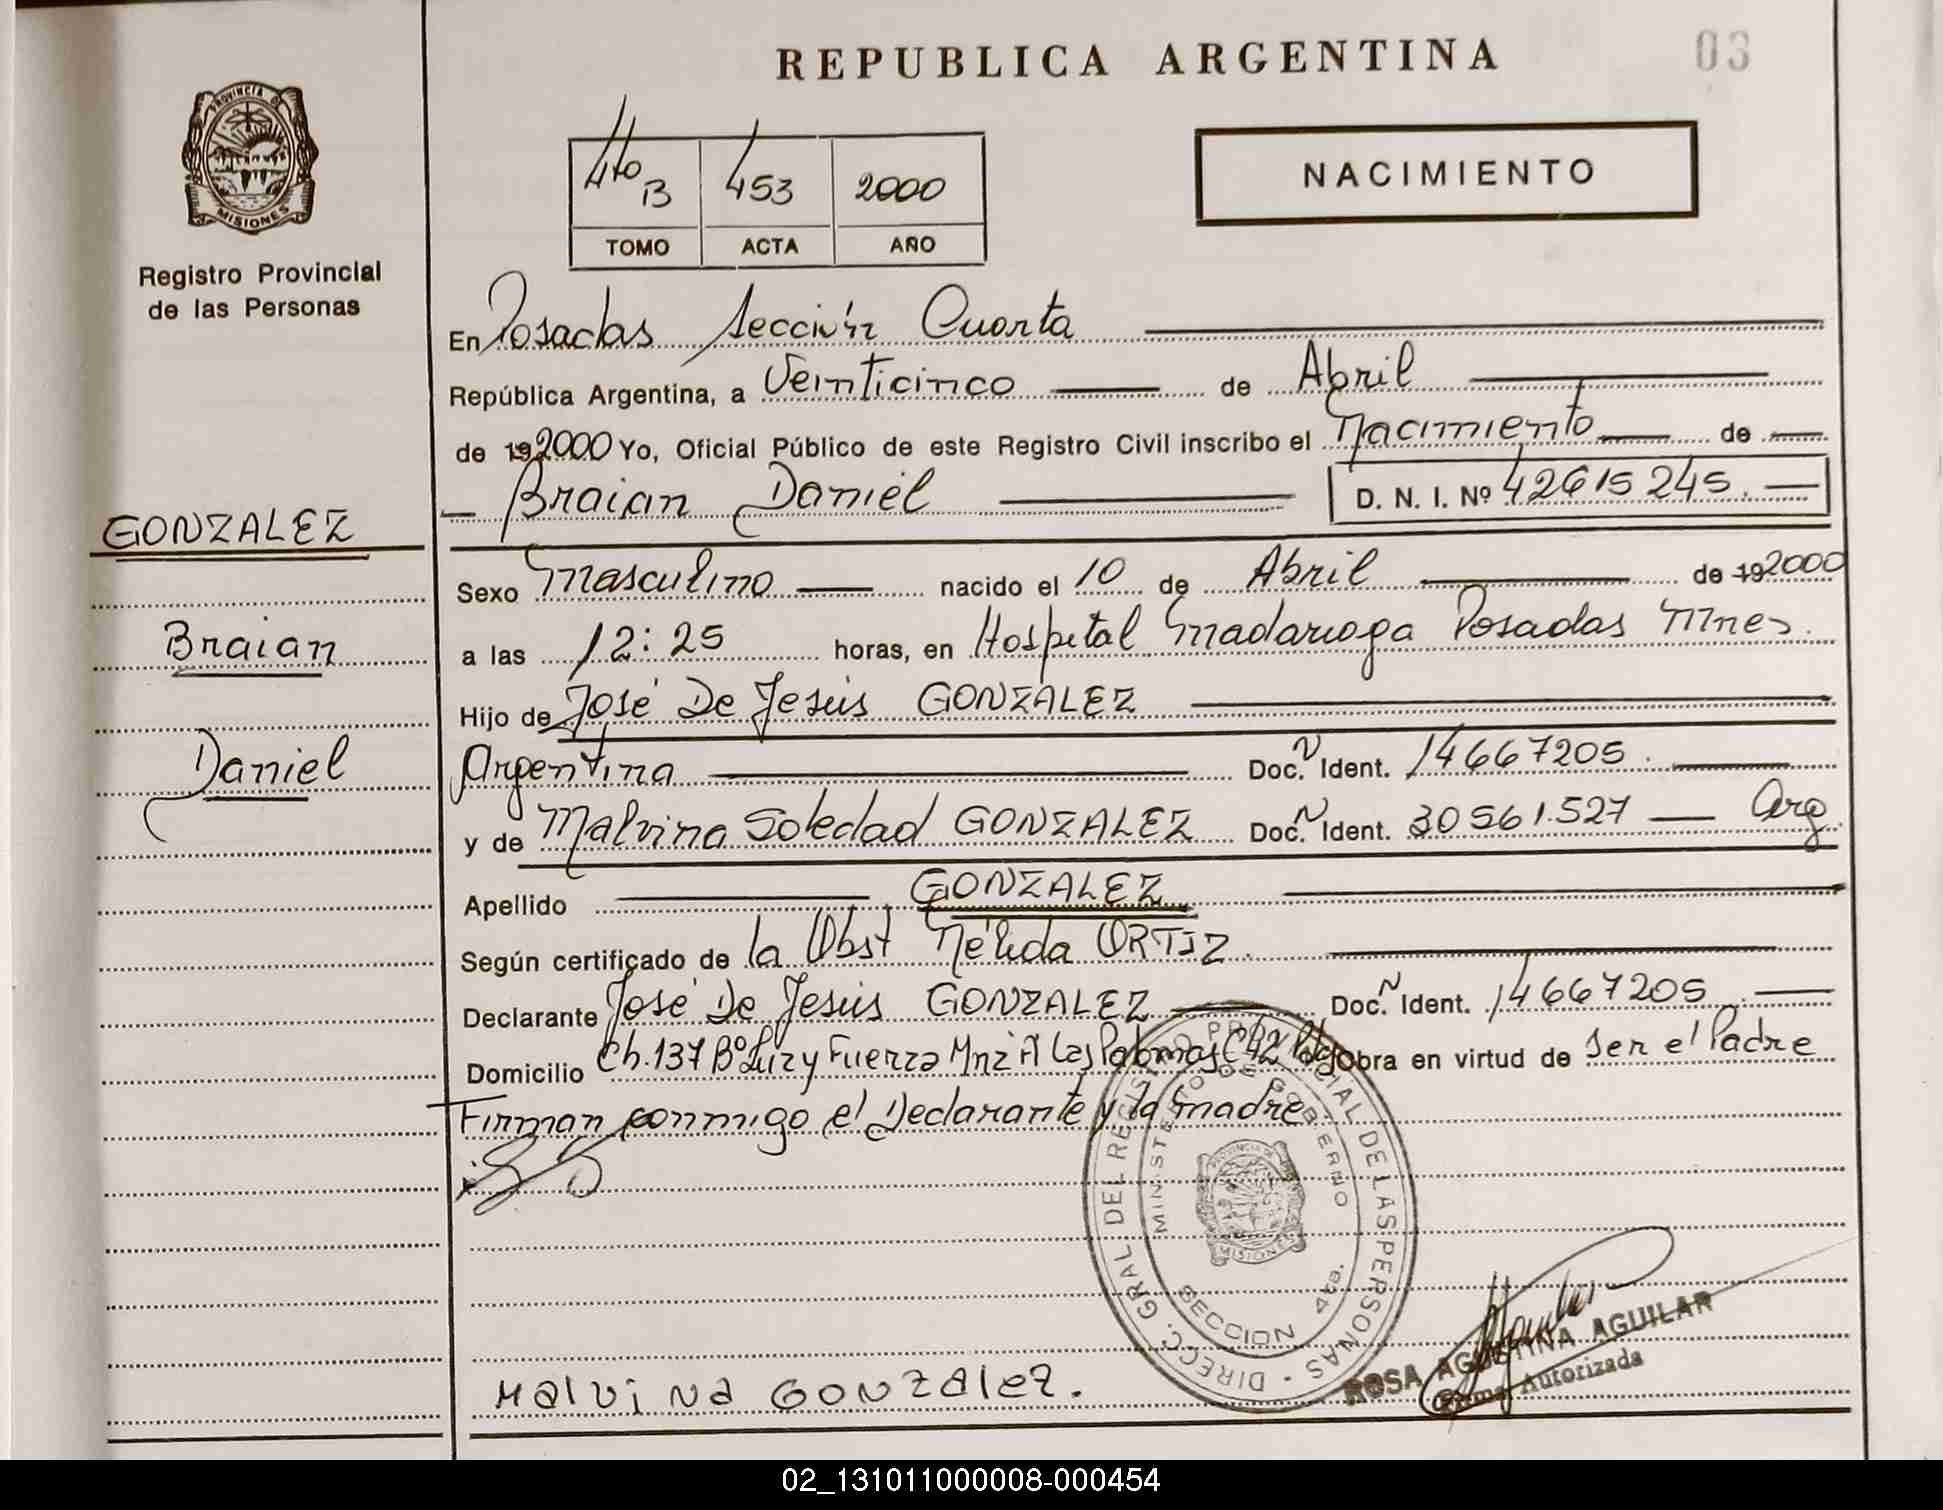 REPUBLICA ARGENTINA
03
PROVINCIA DE
MISIONES
Registro Provincial
de las Personas
4to B 453 2000
TOMO ACTA AÑO
NACIMIENTO
En Posadas Sección Cuarta
República Argentina, a Veinticinco de Abril
de 192000 Yo, Oficial Público de este Registro Civil inscribo el Nacimiento de
Braian Daniel D. N. I. Nº 42615245.
GONZALEZ
Braian
Daniel
Sexo Masculino nacido el 10 de Abril de 192000
a las 12:25 horas, en Hospital Madariaga Posadas Mnes.
Hijo de José De Jesús GONZALEZ
Argentina Doc. N Ident. 14667205.
y de Malvina Soledad GONZALEZ Doc. N Ident. 30561.527 Arg.
Apellido GONZALEZ
Según certificado de la Obst Nélida ORTIZ.
Declarante José De Jesús GONZALEZ Doc. N Ident. 14667205.
Domicilio Ch.137 Bº Luz y Fuerza Mnz A Las Palomas C42 Obra en virtud de Ser el Padre
Firman conmigo el Declarante y la madre
DIRECC. GRAL DEL REGISTRO PROVINCIAL DE LAS PERSONAS
MINISTERIO DE GOBIERNO
PROVINCIA DE
MISIONES
SECCION 4ta.
Malvina GONZalez.
ROSA AGUSTINA AGUILAR
Firma Autorizada
02_131011000008-000454